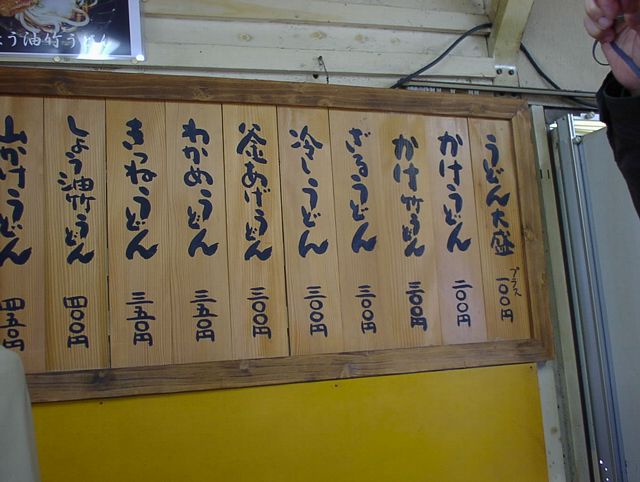 うどん大盛 プラス 一〇〇円
かけうどん 二〇〇円
かけ竹うどん 三〇〇円
ざるうどん 三〇〇円
冷しうどん 三〇〇円
釜あげうどん 三〇〇円
わかめうどん 三五〇円
きつねうどん 三五〇円
しょう油竹うどん 四〇〇円
山かけうどん 四五〇円
ょう油竹うどん